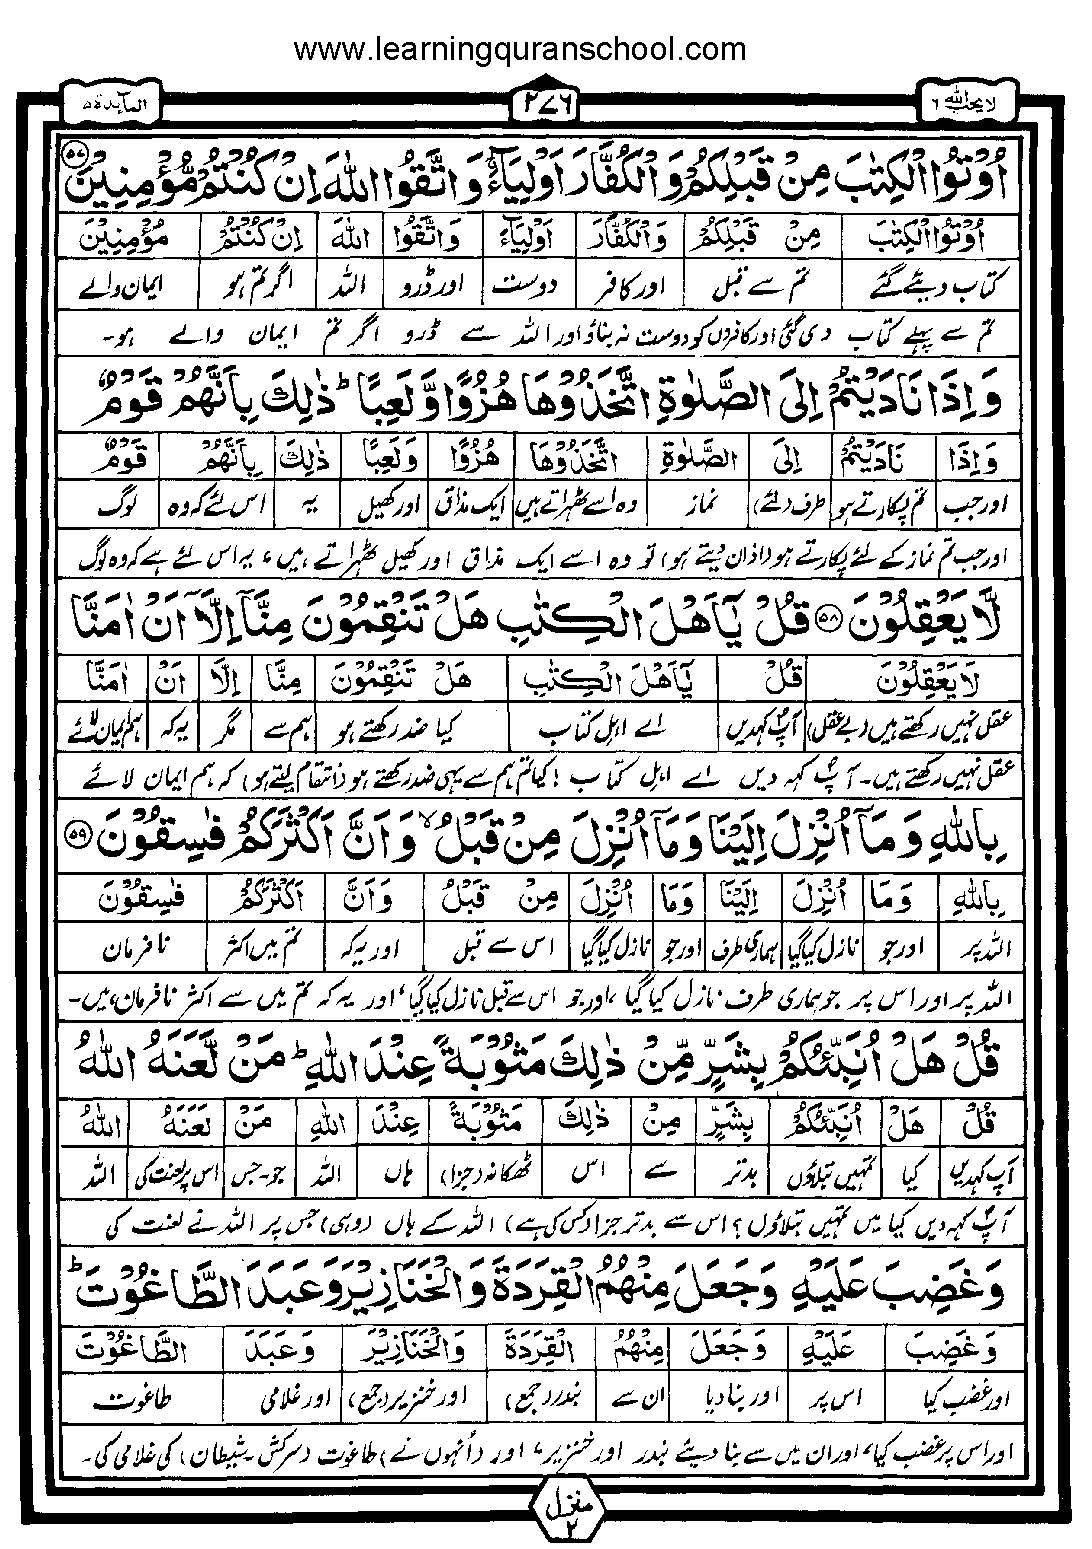 www.learningquranschool.com
لا یحب اللہ ٦
٢٧٦
المآىدة ٥
اُوْتُوا الْكِتٰبَ مِنْ قَبْلِكُمْ وَالْكُفَّارَ اَوْلِيَآءَ ۚ وَاتَّقُوا اللّٰهَ اِنْ كُنْتُمْ مُّؤْمِنِيْنَ ٥٧
اُوْتُوا الْكِتٰبَ مِنْ قَبْلِكُمْ وَالْكُفَّارَ اَوْلِيَآءَ وَاتَّقُوا اللّٰهَ اِنْ كُنْتُمْ مُؤْمِنِيْنَ
کتاب دیئے گئے تم سے قبل اور کافر دوست اور ڈرو اللہ اگر تم ہو ایمان والے
تم سے پہلے کتاب دی گئی اور کافروں کو دوست نہ بناؤ اور اللہ سے ڈرو اگر تم ایمان والے ہو۔
وَاِذَا نَادَيْتُمْ اِلَى الصَّلٰوةِ اتَّخَذُوْهَا هُزُوًا وَّلَعِبًا ؕ ذٰلِكَ بِاَنَّهُمْ قَوْمٌ
وَاِذَا نَادَيْتُمْ اِلَى الصَّلٰوةِ اتَّخَذُوْهَا هُزُوًا وَلَعِبًا ذٰلِكَ بِاَنَّهُمْ قَوْمٌ
اور جب تم پکارتے ہو طرف (لئے) نماز وہ اسے ٹھہراتے ہیں ایک مذاق اور کھیل یہ اس لئے کہ وہ لوگ
اور جب تم نماز کے لئے پکارتے ہو (اذان دیتے ہو) تو وہ اسے ایک مذاق اور کھیل ٹھہراتے ہیں، یہ اس لئے ہے کہ وہ لوگ
لَّا يَعْقِلُوْنَ ٥٨ قُلْ يٰٓاَهْلَ الْكِتٰبِ هَلْ تَنْقِمُوْنَ مِنَّآ اِلَّآ اَنْ اٰمَنَّا
لَا يَعْقِلُوْنَ قُلْ يٰٓاَهْلَ الْكِتٰبِ هَلْ تَنْقِمُوْنَ مِنَّا اِلَّا اَنْ اٰمَنَّا
عقل نہیں رکھتے ہیں (بے عقل) آپؐ کہدیں اے اہل کتاب کیا ضد رکھتے ہو ہم سے مگر یہ کہ ہم ایمان لائے
عقل نہیں رکھتے ہیں۔ آپؐ کہہ دیں اے اہل کتاب! کیا تم ہم سے یہی ضد رکھتے ہو (انتقام لیتے ہو) کہ ہم ایمان لائے
بِاللّٰهِ وَمَآ اُنْزِلَ اِلَيْنَا وَمَآ اُنْزِلَ مِنْ قَبْلُ ۙ وَاَنَّ اَكْثَرَكُمْ فٰسِقُوْنَ ٥٩
بِاللّٰهِ وَمَا اُنْزِلَ اِلَيْنَا وَمَا اُنْزِلَ مِنْ قَبْلُ وَاَنَّ اَكْثَرَكُمْ فٰسِقُوْنَ
اللہ پر اور جو نازل کیا گیا ہماری طرف اور جو نازل کیا گیا اس سے قبل اور یہ کہ تم میں اکثر نافرمان
اللہ پر اور اس پر جو ہماری طرف نازل کیا گیا، اور جو اس سے قبل نازل کیا گیا، اور یہ کہ تم میں سے اکثر نافرمان ہیں۔
قُلْ هَلْ اُنَبِّئُكُمْ بِشَرٍّ مِّنْ ذٰلِكَ مَثُوْبَةً عِنْدَ اللّٰهِ ؕ مَنْ لَّعَنَهُ اللّٰهُ
قُلْ هَلْ اُنَبِّئُكُمْ بِشَرٍّ مِنْ ذٰلِكَ مَثُوْبَةً عِنْدَ اللّٰهِ مَنْ لَعَنَهُ اللّٰهُ
آپ کہدیں کیا تمہیں بتلاؤں بدتر سے اس ٹھکانہ (جزا) ہاں اللہ جو۔جس اس پر لعنت کی اللہ
آپؐ کہہ دیں کیا میں تمہیں بتلاؤں؟ اس سے بدتر جزا (کس کی ہے) اللہ کے ہاں (وہی) جس پر اللہ نے لعنت کی
وَغَضِبَ عَلَيْهِ وَجَعَلَ مِنْهُمُ الْقِرَدَةَ وَالْخَنَازِيْرَ وَعَبَدَ الطَّاغُوْتَ ؕ
وَغَضِبَ عَلَيْهِ وَجَعَلَ مِنْهُمُ الْقِرَدَةَ وَالْخَنَازِيْرَ وَعَبَدَ الطَّاغُوْتَ
اور غضب کیا اس پر اور بنا دیا ان سے بندر (جمع) اور خنزیر (جمع) اور غلامی طاغوت
اور اس پر غضب کیا، اور ان میں سے بنا دیئے بندر اور خنزیر، اور (انہوں نے) طاغوت (سرکش۔شیطان) کی غلامی کی۔
منزل ٢